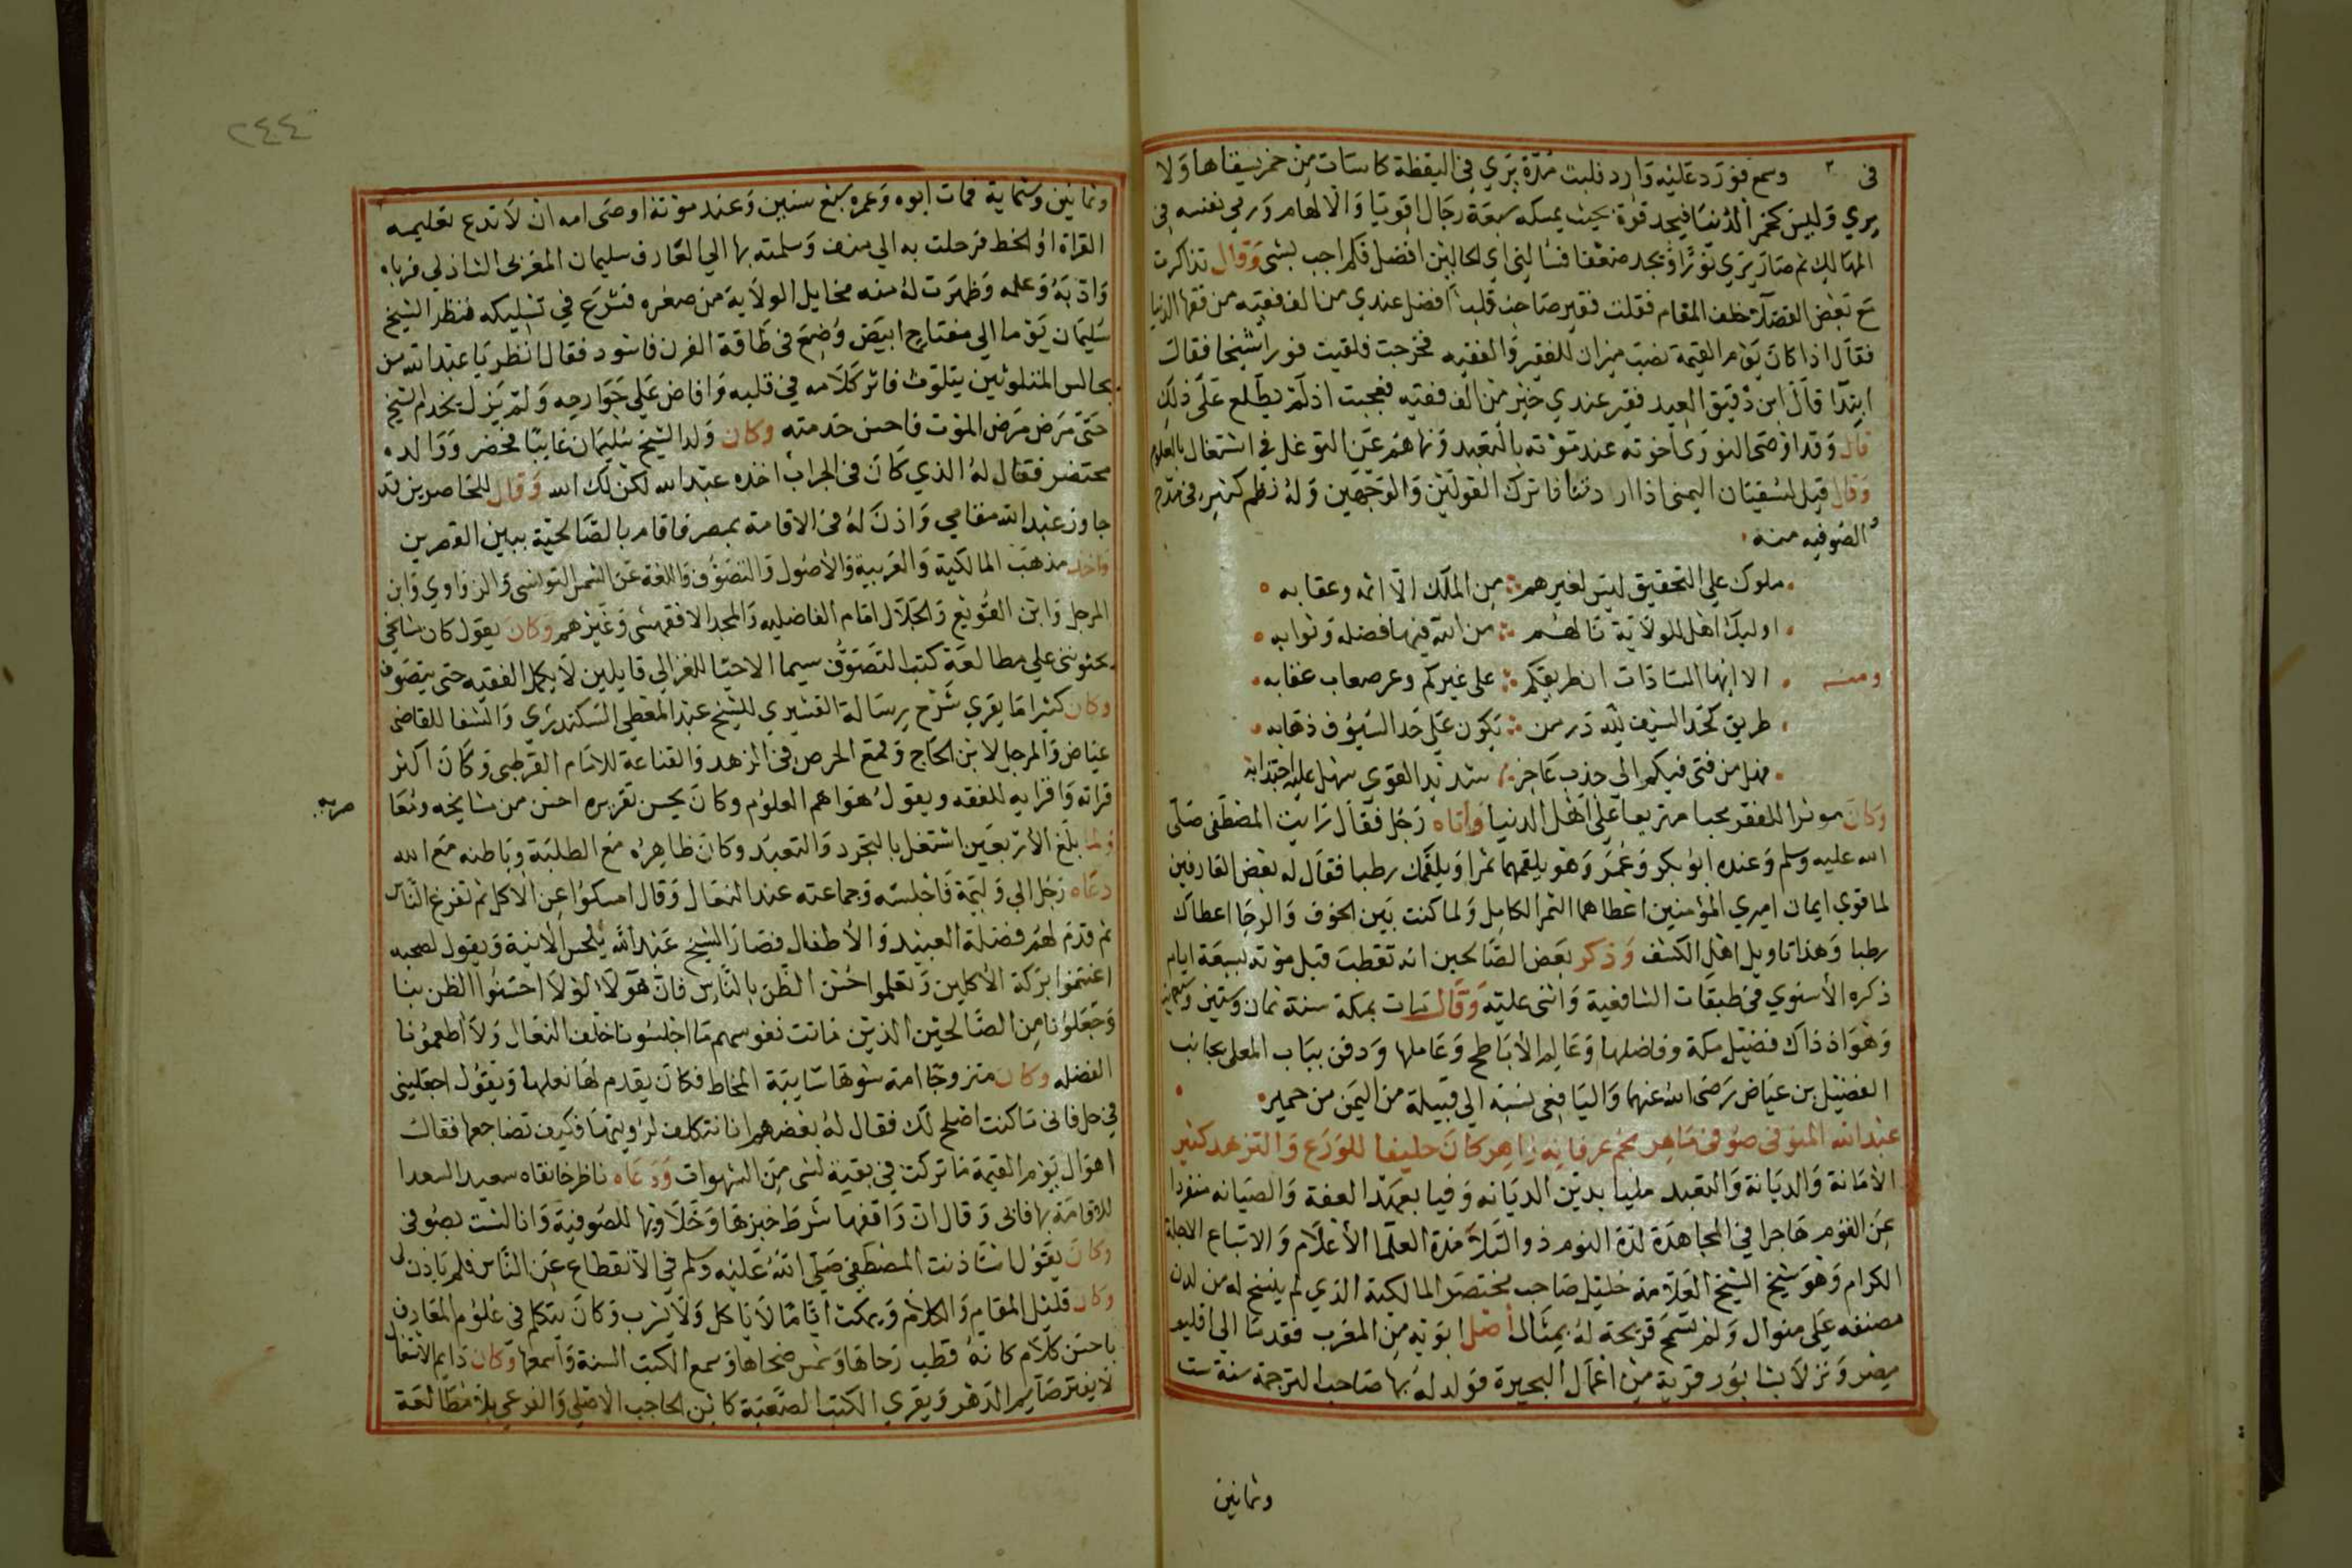 في وسمع فورد عليه وارد فلبث مدة يري في اليقظة كاسات من خمر يسقاها ولا
يري وليس كخمر الدنيا فيجد قوة بحيث يمسكه سبعة رجال اقويا والا لهام ورمي نفسه في
المهالك ثم صار يري نورا ويجد ضعفا فسالني اي الحالين افضل فلم اجب بشي وقال تذاكرت
مع بعض الفضلا خلف المقام فقلت فقير صاحب قلب افضل عندي من الف فقيه من فقها الدنيا
فقال اذا كان يوم القيمة نصب ميزان للفقير والفقيه فخرجت فلقيت فورا شيخا فقال
ابتدا قال ابن دقيق العيد فقير عندي خير من الف فقيه فعجبت اذ لم يطلع علي ذلك
قال وقد اوصي النووي اخوته عند موته بالتعبد ونهاهم عن التوغل في اشتغال بالعلوم
وقال قيل لسفيان اليمني اذا اردتنا فاترك القولين والوجهين وله نظم كثير في مدح
الصوفيه منه
ملوك علي التحقيق ليس لغيرهم من الملك الا اثمه وعقابه
اوليك اهل للولاية نالهم من الله فيها فضله وثوابه
ومنه الا ايها السادات ان طريقكم على غيركم وعر صعاب عقابه
طريق كحد السيف لله در من يكون علي حد السيوف ذهابه
فهل من فتى فيكم الي جذب عاجز شديد القوي سهل عليه اجتذابه
وكان موثرا للفقر محبا مترفعا علي اهل الدنيا واتاه رجل فقال رايت المصطفى صلى
الله عليه وسلم وعنده ابو بكر وعمر وهو يلقمهما تمرا ويلقمك رطبا فقال له بعض العارفين
لما قوي ايمان اميري المؤمنين اعطاهما التمر الكامل ولما كنت بين الخوف والرجا اعطاك
رطبا وهذا تاويل اهل الكشف وذكر بعض الصالحين انه تقطب قبل موته بسبعة ايام
ذكره الأسنوي في طبقات الشافعية واثنى عليه وقال مات بمكة سنة ثمان وستين وسبعمايه
وهو اذ ذاك فضيل مكة وفاضلها وعالم الأباطح وعاملها ودفن بباب المعلى بجانب
الفضيل بن عياض رضي الله عنهما واليافعي نسبة الي قبيلة من اليمن من حمير
عبد الله المنوفي صوفي ماهر نجم عرفانه زاهر كان حليفا للورع والتزهد كثير
الأمانة والديانة والتعبد مليا بدين الديانه وفيا بعهد العفة والصيانه منفردا
عن القوم هاجرا في المجاهدة لذة النوم ذو التلامذة العلما الأعلام والاتباع الاجلة
الكرام وهو شيخ الشيخ العلامة خليل صاحب مختصر المالكية الذي لم ينسخ له من لدن
مصنفه علي منوال ولم تسمح قريحة له بمثال اصل ابويه من المغرب فقدما الي اقليم
مصر ونزلا بشابور قرية من اعمال البحيرة فولد له بها صاحب الترجمة سنة ست
وثمانين
٢٤٤
وثمانين وستماية فمات ابوه وعمره سبع سنين وعند موته اوصى امه ان لا تدع تعليمه
القراة او الخط فرحلت به الي منف وسلمته بها الي العارف سليمان المغربي الشاذلي فرباه
وادبه وعلمه وظهرت له منه مخايل الولاية من صغره فشرع في تسليكه فنظر الشيخ
سليمان يوما الي مفتاح ابيض وضع في طاقة الفرن فاسود فقال انظر يا عبد الله من
يجالس المتلوثين يتلوث فاثر كلامه في قلبه وافاض علي جوارحه ولم يزل يخدم الشيخ
حتى مرض مرض الموت فاحسن خدمته وكان ولد الشيخ سليمان غايبا فحضر ووالده
محتضر فقال له الذي كان في الجراب اخذه عبد الله لكن لك الله وقال للحاضرين قد
جاوز عبد الله مقامي واذن له في الاقامة بمصر فاقام بالصالحية ببين القصرين
واخذ مذهب المالكية والعربية والأصول والتصوف واللغة عن الشمس التونسي والزواوي وابن
المرحل وابن القوبع والجلال امام الفاضليه والمجد الاقفهسي وغيرهم وكان يقول كان مشايخي
يحثونني علي مطالعة كتب التصوف سيما الاحيا للغزالي قايلين لا يكمل الفقيه حتى يتصوف
وكان كثيرا ما يقري شرح رسالة القشيري للشيخ عبد المعطي السكندري والشفا للقاضي
عياض والمدخل لابن الحاج وقمع الحرص في الزهد والقناعة للامام القرطبي وكان اكثر
قراته واقرايه للفقه ويقول هو اهم العلوم وكان يحسن تقريره احسن من مشايخه
ولما بلغ الأربعين اشتغل بالتجرد والتعبد وكان ظاهره مع الطلبة وباطنه مع الله
دعاه رجل الي وليمة فاجلسه وجماعته عند النعال وقال امسكوا عن الاكل ثم تفرغ الناس
ثم قدم لهم فضلة العبيد والأطفال فصار الشيخ عبد الله يلحس الانية ويقول لصحبه
اغتنموا بركة الأكلين وتعلموا حسن الظن بالناس فان هولا لولا احسنوا الظن بنا
وجعلونا من الصالحين الذين ماتت نفوسهم ما اجلسونا خلف النعال ولا اطعمونا
الفضله وكان متزوجا امة شوها سايبة المخاط فكان يقدم لها نعلها ويقول اجعليني
في حل فاني ما كنت اصلح لك فقال له بعضهم انا نتكلف لرؤيتها فكيف تضاجعها فقال
اهوال يوم القيمة ما تركت في بقية لشي من الشهوات ودعاه ناظر خانقاه سعيد السعدا
للاقامة بها فابى وقال ان واقفها شرط خبزها وخلاويها للصوفية وانا لست بصوفي
وكان يقول استاذنت المصطفى صلى الله عليه وسلم في الانقطاع عن الناس فلم ياذن لي
وكان قليل المقام والكلام ويمكث اياما لا ياكل ولا يشرب وكان يتكلم في علوم المعارف
باحسن كلام كانه قطب رحاها وشمس ضحاها وسمع الكتب الستة واسمعها وكان دايم الاشتغال
لا يفتر صايم الدهر ويقري الكتب الصعبة كابن الحاجب الاصلي والفرعي بلا مطالعة